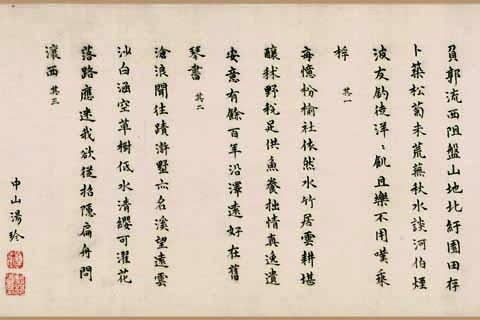 負郭流西阻盤山地北紆園田存
卜築松菊未荒蕪秋水談河伯煙
波友釣徒洋〻飢且樂不用嘆乘
桴 其一
每憶枌榆社依然水竹居雲耕堪
釀秫野稅足供魚養拙情真逸遺
安意有餘百年沿澤遠好在舊
琴書 其二
滄浪聞往蹟滸墅亦名溪望遠雲
沙白涵空草樹低水清纓可濯花
落路應迷我欲從招隱扁舟問
瀼西 其三
中山湯珍